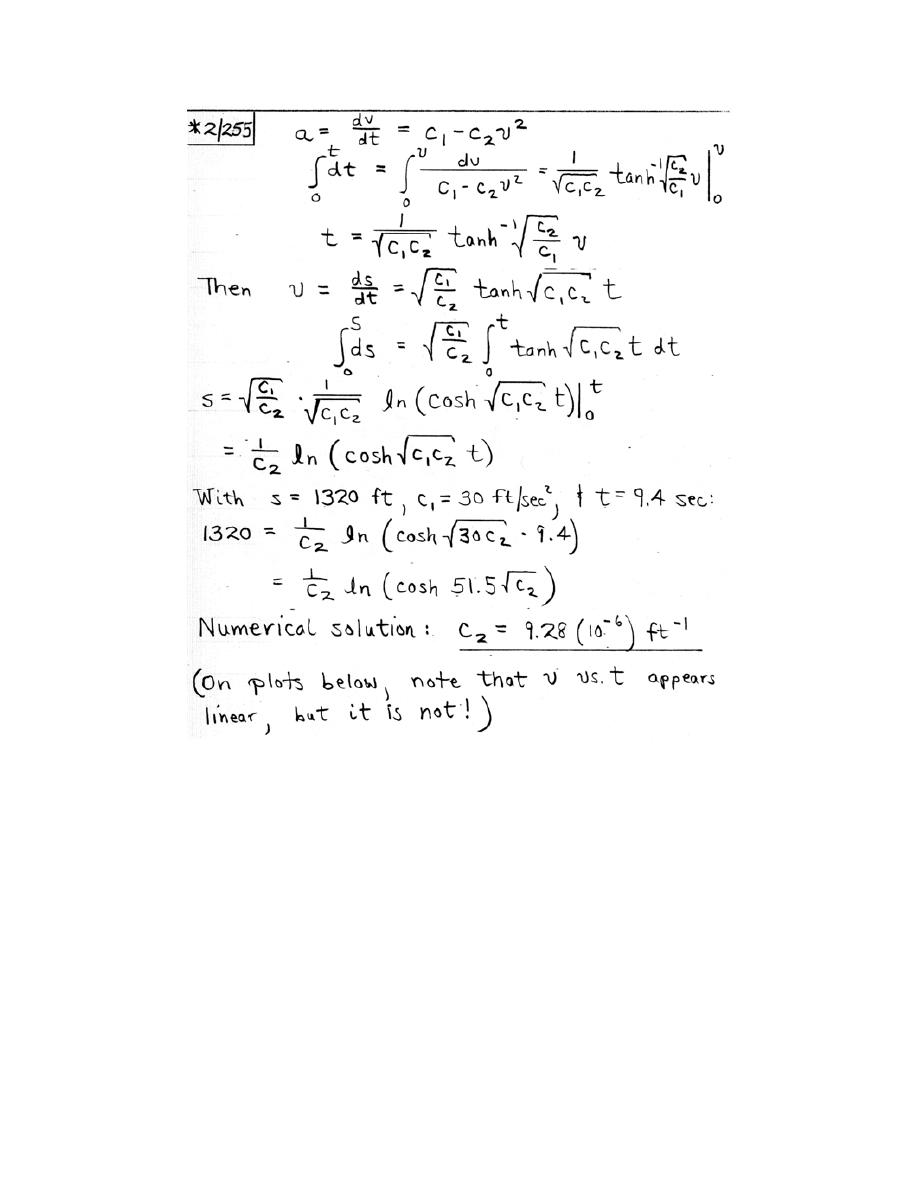 *2/255 a = dv/dt = C₁ - C₂v²
∫₀ᵗ dt = ∫₀ᵛ dv/(C₁ - C₂v²) = 1/√(C₁C₂) tanh⁻¹ √(C₂/C₁) v |₀ᵛ
t = 1/√(C₁C₂) tanh⁻¹ √(C₂/C₁) v
Then v = ds/dt = √(C₁/C₂) tanh √(C₁C₂) t
∫₀ˢ ds = √(C₁/C₂) ∫₀ᵗ tanh √(C₁C₂) t dt
s = √(C₁/C₂) · 1/√(C₁C₂) ln (cosh √(C₁C₂) t)|₀ᵗ
= 1/C₂ ln (cosh √(C₁C₂) t)
With s = 1320 ft, C₁ = 30 ft/sec², & t = 9.4 sec:
1320 = 1/C₂ ln (cosh √(30C₂) · 9.4)
= 1/C₂ ln (cosh 51.5√C₂)
Numerical solution : C₂ = 9.28 (10⁻⁶) ft⁻¹
(On plots below, note that v vs. t appears
linear, but it is not!)